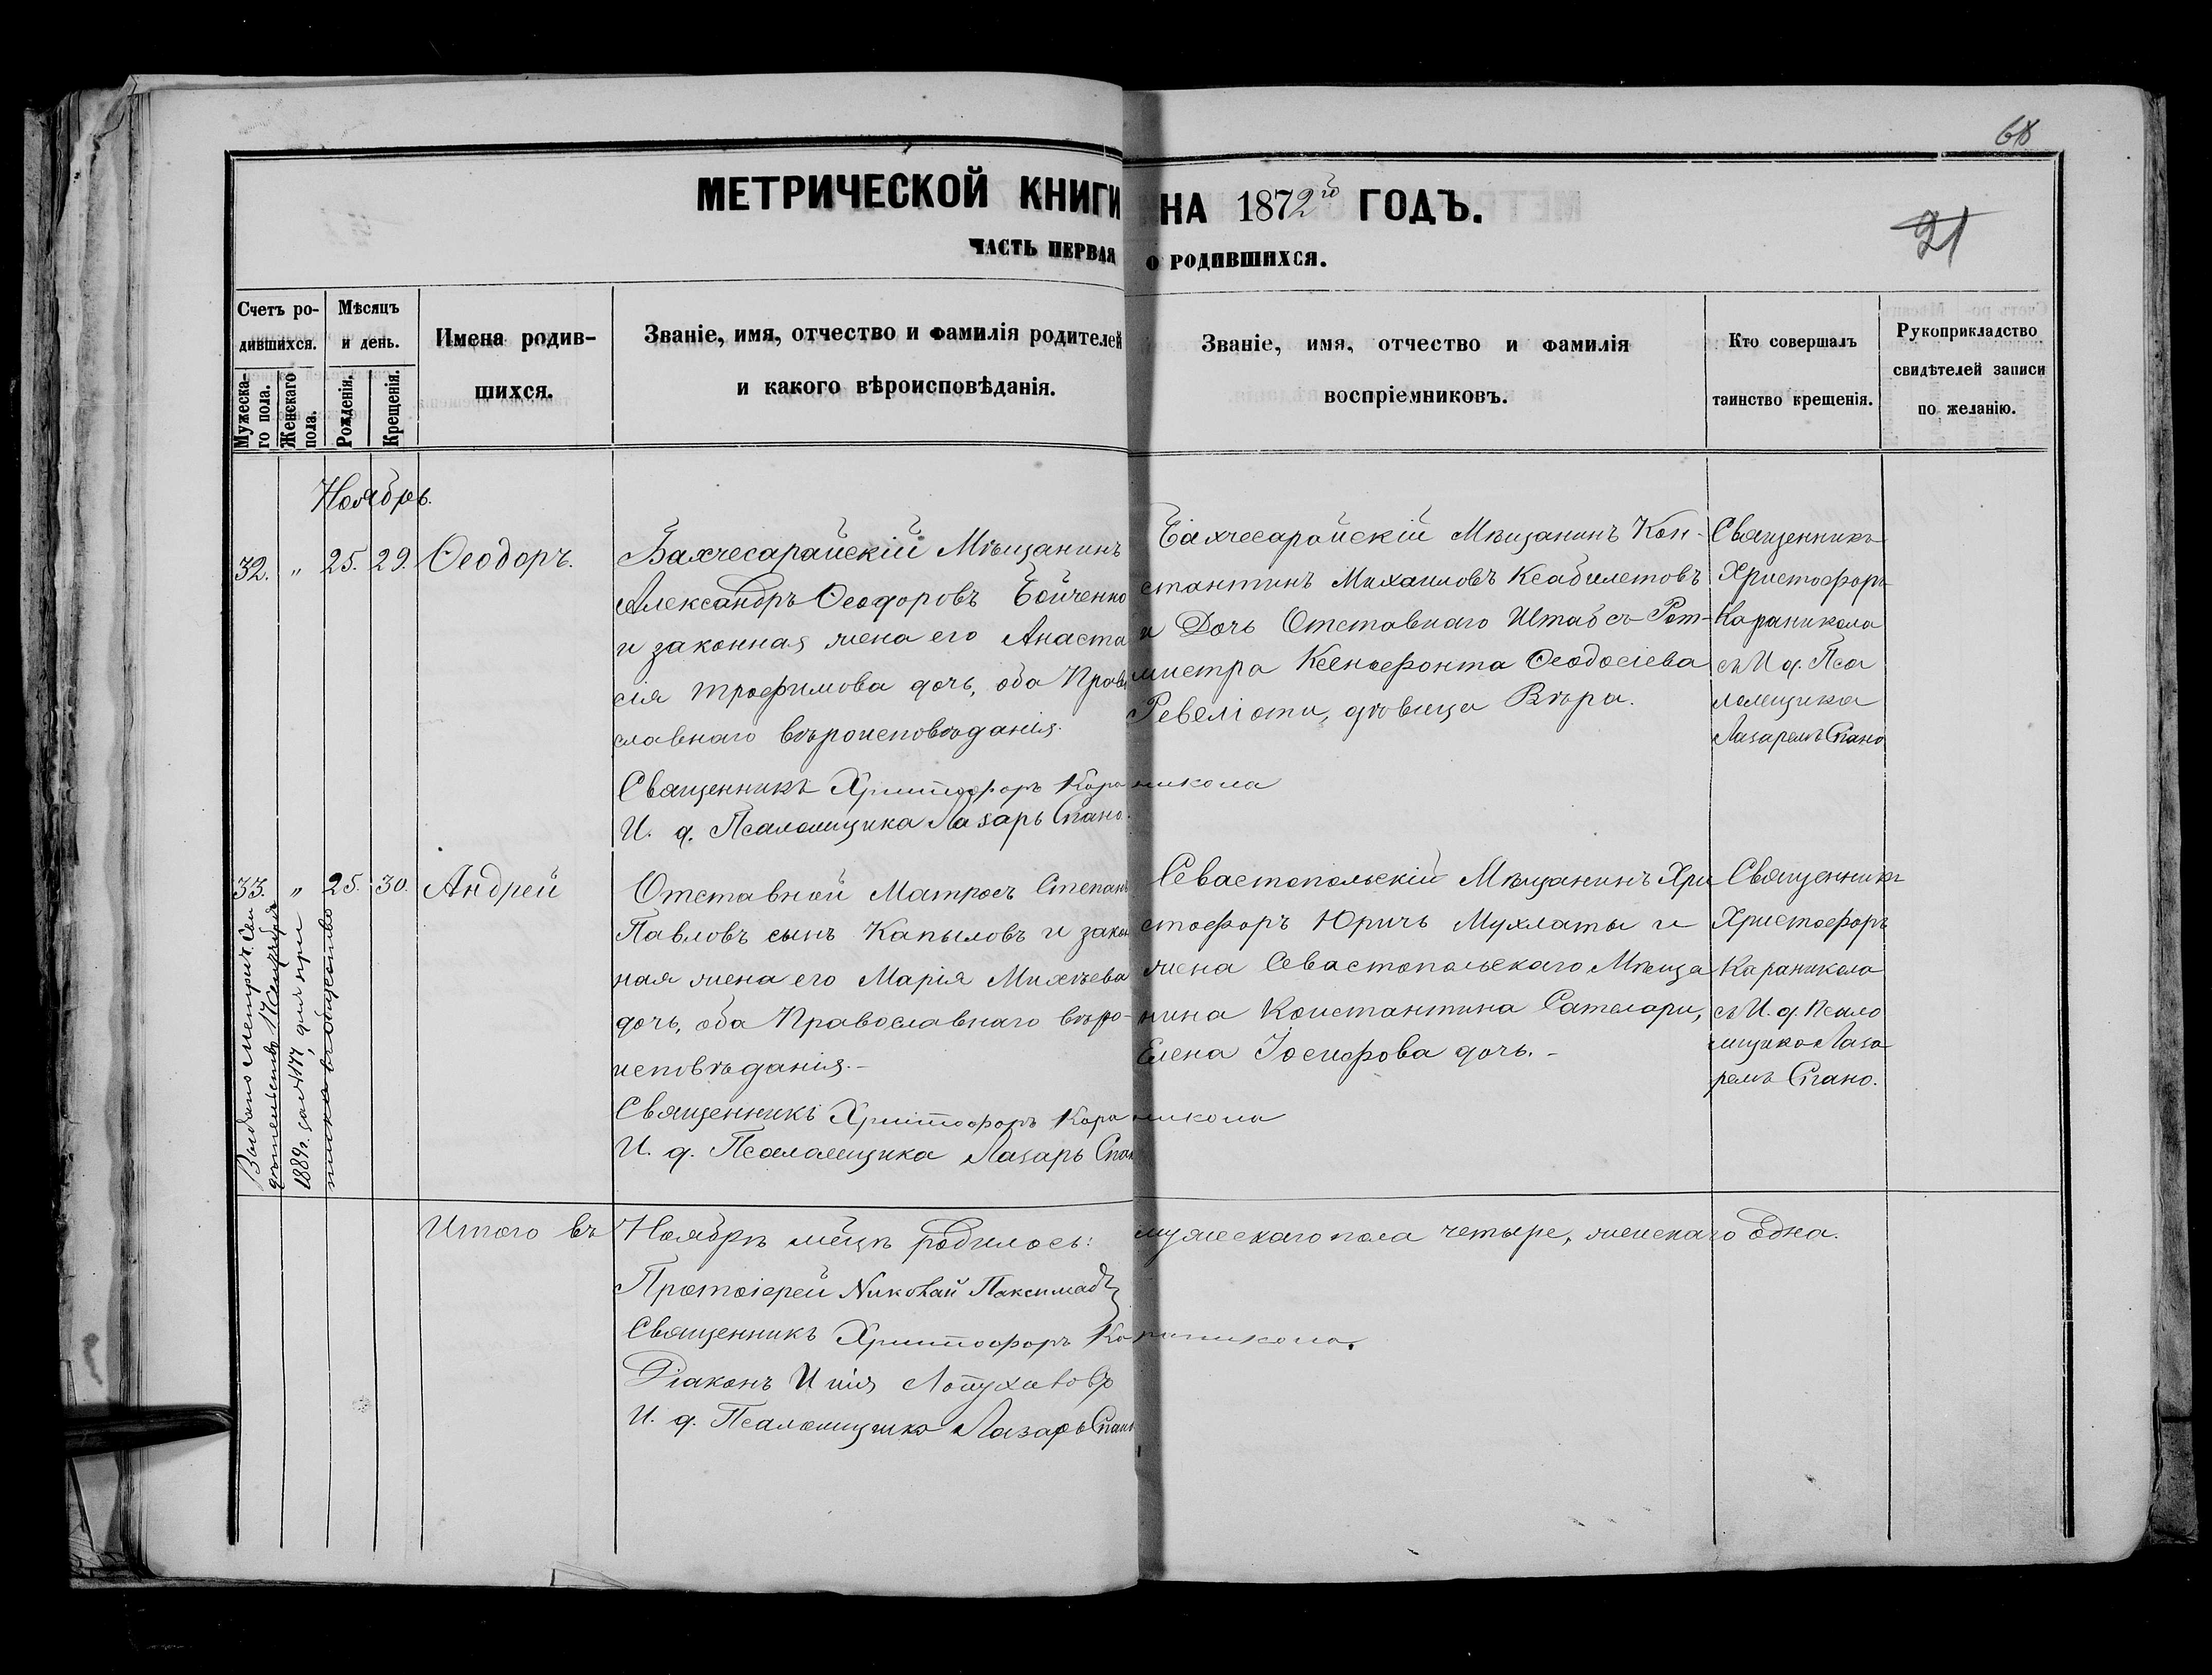 68
МЕТРИЧЕСКОЙ КНИГИ НА 1872го ГОДЪ.
21
ЧАСТЬ ПЕРВАЯ О РОДИВШИХСЯ.
Счетъ ро-
дившихся.
Мужеска-
го пола.
Женскаго
пола.
Мѣсяцъ
и день.
Рожденія.
Крещенія.
Имена родив-
шихся.
Званіе, имя, отчество и фамилія родителей
и какого вѣроисповѣданія.
Званіе, имя, отчество и фамилія
воспріемниковъ.
Кто совершалъ
таинство крещенія.
Рукоприкладство
свидѣтелей записи
по желанію.
Ноябрь.
32. " 25. 29. Ѳеодоръ.
Бахчесарайскій Мѣщанинъ
Александръ Ѳеодоровъ Бойченко
и законная жена его Анаста
сія Трофимова дочь, оба Право
славнаго вѣроисповѣданія.
Священникъ Христофоръ Кара никола
И. д. Псаломщика Лазарь Спано.
Бахчесарайскій Мѣщанинъ Кон-
стантинъ Михаиловъ Ксабилетовъ
и Дочь Отставнаго Штабсъ-Рот-
мистра Ксенофонта Ѳеодосіева
Ревеліоти, дѣвица Вѣра.
Священникъ
Христофоръ
Караникола
съ И д. Пса
ломщика
Лазаремъ Спано
33. " 25. 30. Андрей
Отставной Матросъ Степанъ
Павловъ сынъ Капыловъ и закон
ная жена его Марія Михѣева
дочь, оба Православнаго вѣро-
исповѣданія.-
Священникъ Христофоръ Кара никола
И. д. Псаломщика Лазарь Спано
Севастопольскій Мѣщанинъ Хри
стофоръ Юричъ Мухлаты и
жена Севастопольскаго Мѣща
нина Константина Сателари,
Елена Іосифова дочь.-
Священникъ
Христофоръ
Караникола
съ И. д. Псало
мщика Лаза
ремъ Спано.
Выдано метрич. Сви
дѣтельство 17 Сентября
1889г. за № 177, для при
писки въ общество
Итого въ Ноябрѣ мѣцѣ родилось: мужескаго пола четыре, женскаго одна.
Протоіерей Николай Паксимадъ
Священникъ Христофоръ Караникола.
Діаконъ Илія Лопухатовъ
И. д. Псаломщика Лазарь Спано